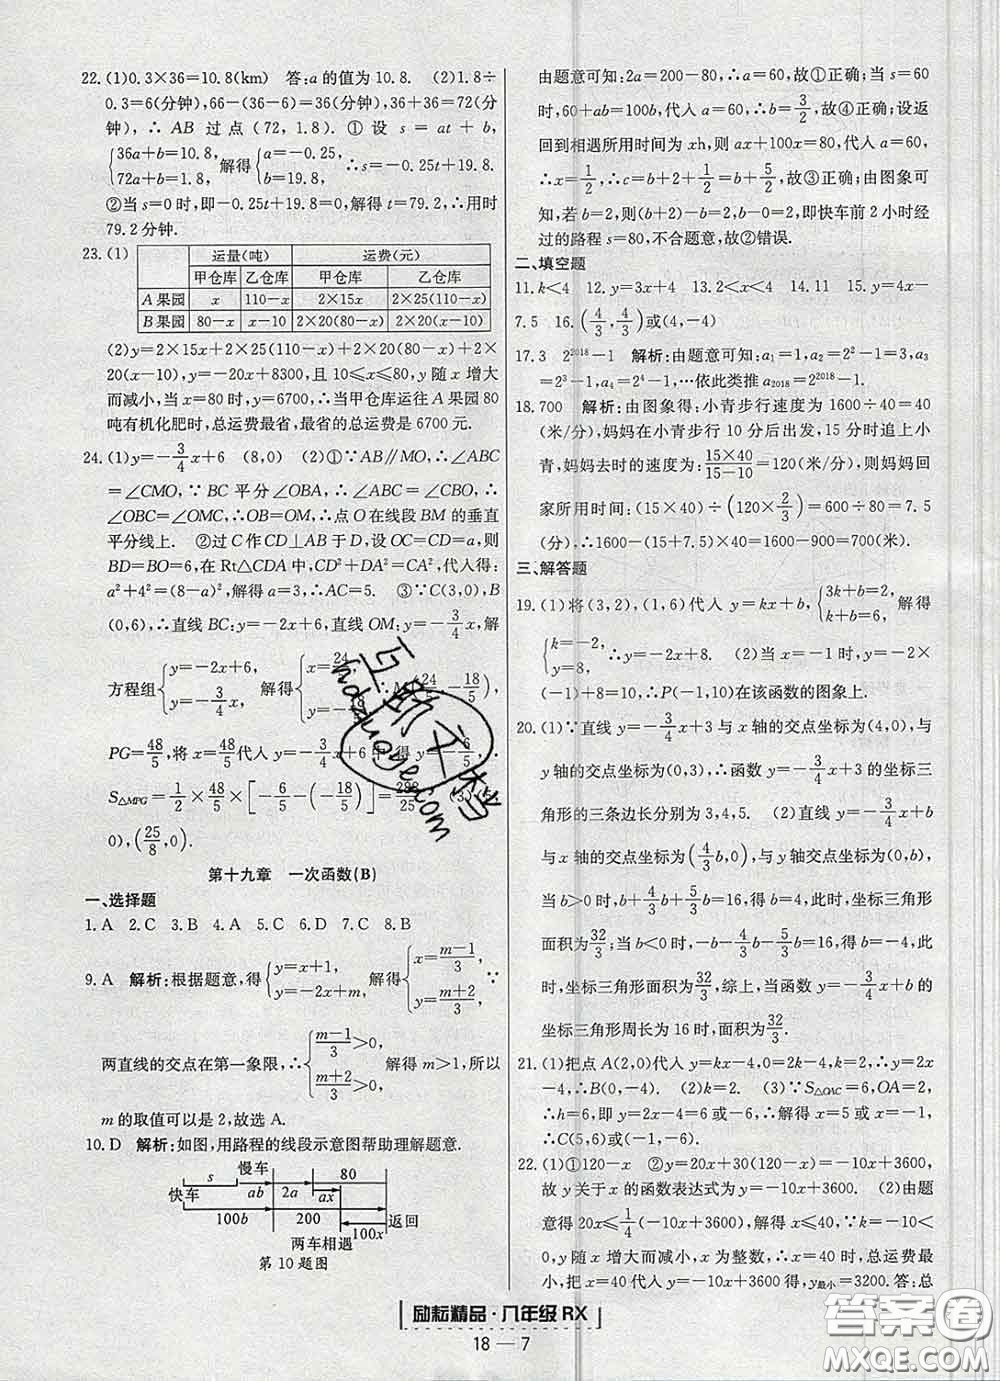 22. (1)0.3×36=10.8(km)　答:a 的值为 10.8.　(2)1.8÷
0.3=6(分钟),66-(36-6)=36(分钟),36+36=72(分
钟),∴ AB 过点 (72, 1.8). ① 设 s = at + b,
{36a+b=10.8, 72a+b=1.8, 解得{a=-0.25, b=19.8, ∴s=-0.25t+19.8.
②当 s=0 时,即-0.25t+19.8=0,解得 t=79.2,∴用时
79.2 分钟.
23. (1)
运量(吨) 运费(元)
甲仓库 乙仓库 甲仓库 乙仓库
A 果园 x 110-x 2×15x 2×25(110-x)
B 果园 80-x x-10 2×20(80-x) 2×20(x-10)
(2)y=2×15x+2×25(110-x)+2×20(80-x)+2×
20(x-10),y=-20x+8300,且 10≤x≤80,y 随 x 增大
而减小,当 x=80 时,y=6700,∴当甲仓库运往 A 果园 80
吨有机化肥时,总运费最省,最省的总运费是 6700 元.
24. (1)y=-3/4x+6　(8,0)　(2)①∵AB∥MO,∴∠ABC
=∠CMO,∵BC 平分∠OBA,∴∠ABC=∠CBO,∴
∠OBC=∠OMC,∴OB=OM,∴点 O 在线段 BM 的垂直
平分线上.　②过 C 作 CD⊥AB 于 D,设 OC=CD=a,则
BD=BO=6,在 Rt△CDA 中,CD²+DA²=CA²,代入得:
a²+4²=(8-a)²,解得 a=3,∴AC=5.　③∵C(3,0),B
(0,6),∴直线 BC:y=-2x+6,直线 OM:y=-3/4x,解
方程组{y=-2x+6, y=-3/4x, 解得{x=24/5, y=-18/5,
PG=48/5,将 x=48/5代入 y=-3/4x+6 中,得 y=-6/5,∴
S△MPG=1/2×48/5×[-6/5-(-18/5)]=288/25
0),(25/8,0).
第十九章　一次函数(B)
一、选择题
1. A　2. C　3. B　4. B　5. C　6. D　7. C　8. B
9. A　解析:根据题意,得{y=x+1, y=-2x+m, 解得{x=(m-1)/3, y=(m+2)/3, ∵
两直线的交点在第一象限,∴{(m-1)/3>0, (m+2)/3>0, 解得 m>1,所以
m 的取值可以是 2,故选 A.
10. D　解析:如图,用路程的线段示意图帮助理解题意.
s 慢车 80
快车 ab 2a ax
100b 200 100x 返回
两车相遇
第 10 题图
由题意可知:2a=200-80,∴a=60,故①正确;当 s=60
时,60+ab=100b,代入 a=60,∴b=3/2,故④正确;设返
回到相遇所用时间为 xh,则 ax+100x=80,代入 a=60,
∴x=1/2,∴c=b+2+1/2=b+5/2,故③正确;由图象可
知,若 b=2,则(b+2)-b=2,b-0=2,即快车前 2 小时经
过的路程 s=80,不合题意,故②错误.
二、填空题
11. k<4　12. y=3x+4　13. 2<x<4　14. 11　15. y=4x-
7.5　16. (4/3,4/3)或(4,-4)
17. 3　2²⁰¹⁸-1　解析:由题意可知:a₁=1,a₂=2²-1=3,a₃
=2³-1,a₄=2⁴-1,…依此类推 a₂₀₁₈=2²⁰¹⁸-1.
18. 700　解析:由图象得:小青步行速度为 1600÷40=40
(米/分),妈妈在小青步行 10 分后出发,15 分时追上小
青,妈妈去时的速度为:15×40/15-10=120(米/分),则妈妈回
家所用时间:(15×40)÷(120×2/3)=600÷80=7.5
(分),∴1600-(15+7.5)×40=1600-900=700(米).
三、解答题
19. (1)将(3,2),(1,6)代入 y=kx+b,{3k+b=2, k+b=6, 解得
{k=-2, y=8, ∴y=-2x+8.　(2)当 x=-1 时,y=-2×
(-1)+8=10,∴P(-1,10)在该函数的图象上.
20. (1)∵直线 y=-3/4x+3 与 x 轴的交点坐标为(4,0),与
y 轴的交点坐标为(0,3),∴函数 y=-3/4x+3 的坐标三
角形的三条边长分别为 3,4,5.　(2)直线 y=-3/4x+b
与 x 轴的交点坐标为(4/3b,0),与 y 轴交点坐标为(0,b),
当 b>0 时,b+4/3b+5/3b=16,得 b=4,此时,坐标三角形
面积为32/3;当 b<0 时,-b-4/3b-5/3b=16,得 b=-4,此
时,坐标三角形面积为32/3,综上,当函数 y=-3/4x+b 的
坐标三角形周长为 16 时,面积为32/3.
21. (1)把点 A(2,0)代入 y=kx-4,0=2k-4,k=2,∴y=2x
-4,∴B(0,-4).　(2)k=2.　(3)∵S△OAC=6,OA=2,
∴C(5,6)或(-1,-6).
22. (1)①120-x　②y=20x+30(120-x)=-10x+3600,
故 y 关于 x 的函数表达式为 y=-10x+3600.　(2)由题
意得 20x≤1/4(-10x+3600),解得 x≤40,∵k=-10<
0,y 随 x 增大而减小,x 为整数,∴x=40 时,总运费最
小,把 x=40 代入 y=-10x+3600 得,y最小=3200. 答:总
励耘精品·八年级 RX
18 — 7
答案圈
MXQE.COM